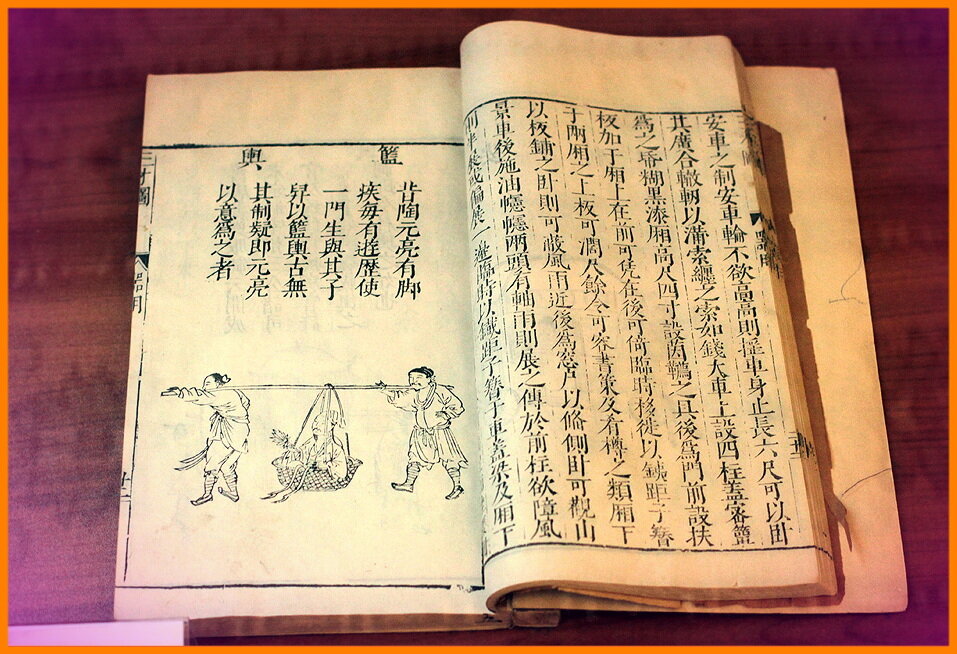 安車之制安車輪不欲高高則搖車身止長六尺可以卧
其廣合轍輞以蒲索纏之索如錢大車上設四柱蓋密簟
爲之糊黑漆廂高尺四寸設茵之具後爲門前設扶
板加于廂上在前可凭在後可倚臨時移徙以鐵距子簪
于兩廂之上板可濶尺餘令可容書策及有樽之類廂下
以板鋪之卧則可蔽風雨近後爲窓户以備側卧可觀山
景車後施油幰幰兩頭有軸雨則展之傅於前柱欲障風
則半展或偏展一邊臨時以鐵距子簪于車蓋梁及廂下
籃輿
昔陶元亮有脚
疾每有遊歷使
一門生與其子
舁以籃輿古無
其制疑即元亮
以意爲之者
三才圖
器用